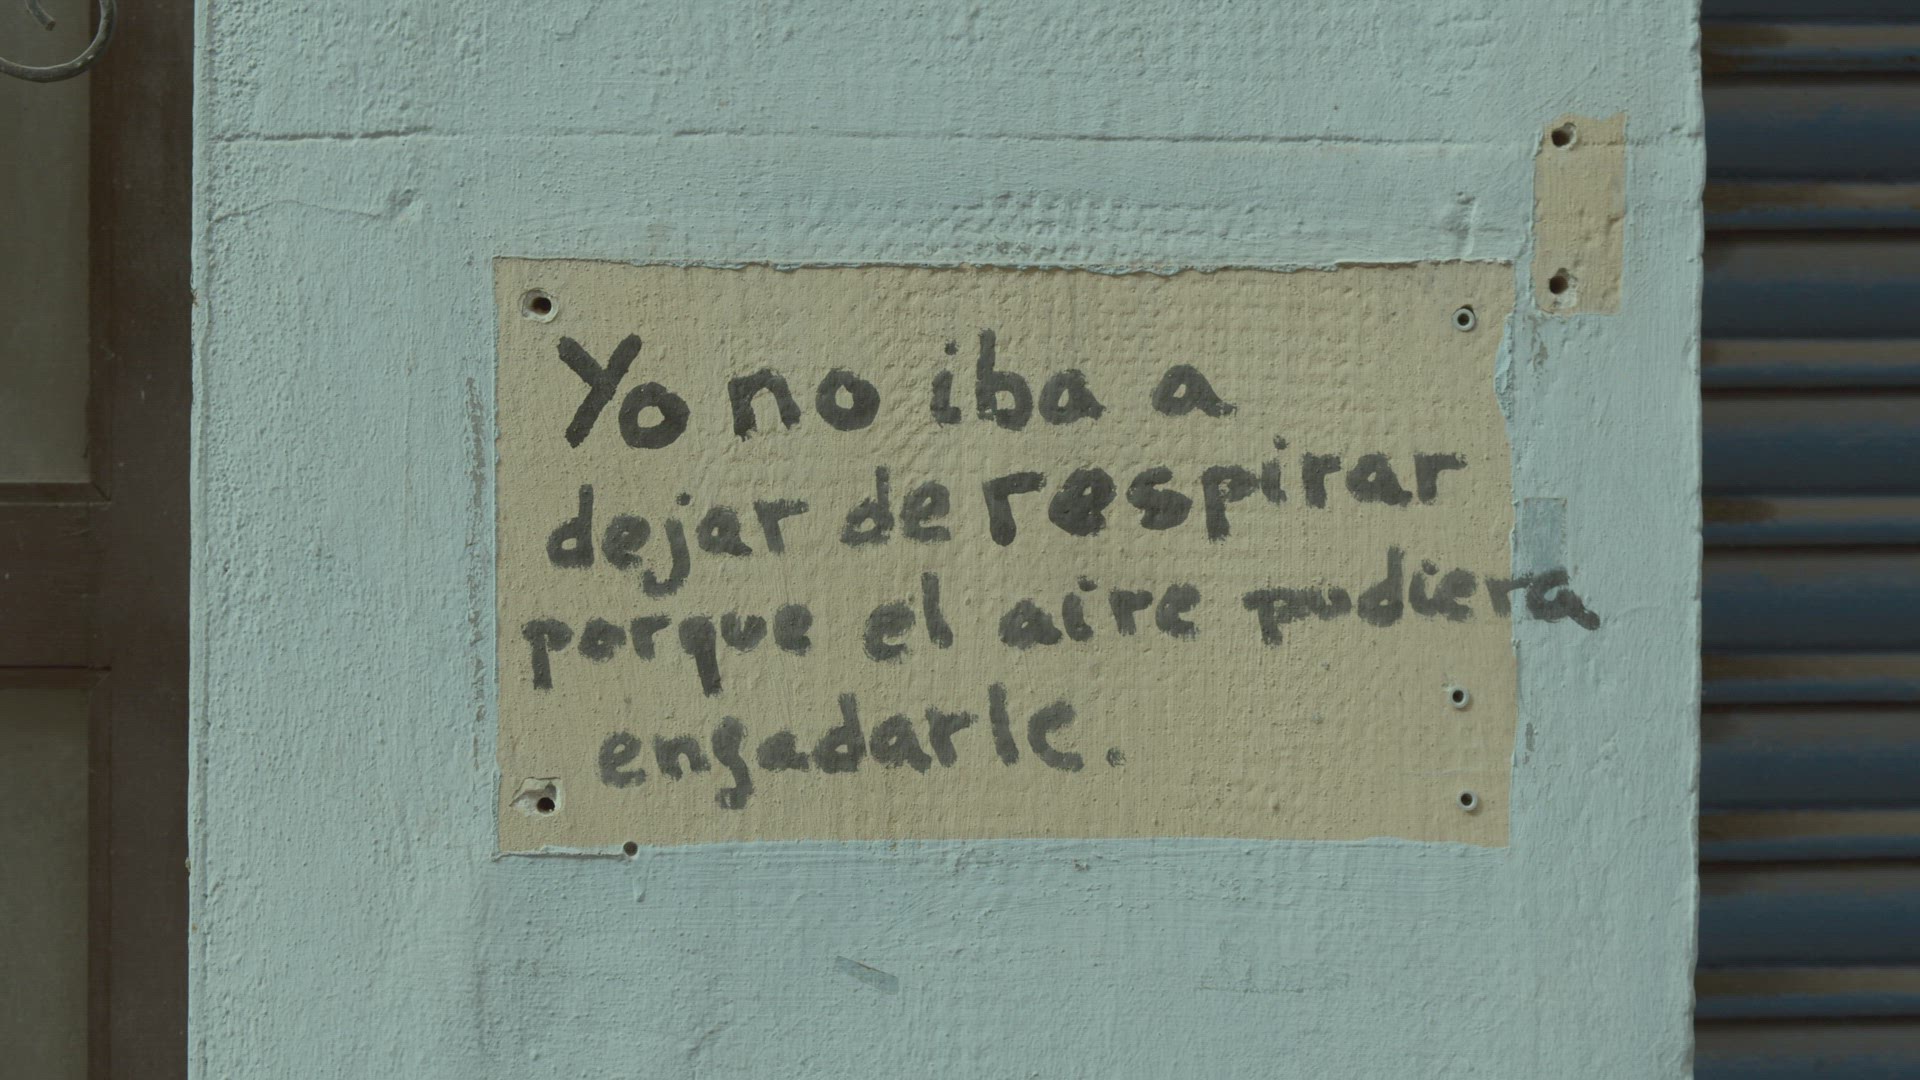 Yo no iba a
dejar de respirar
porque el aire pudiera
engadarle.